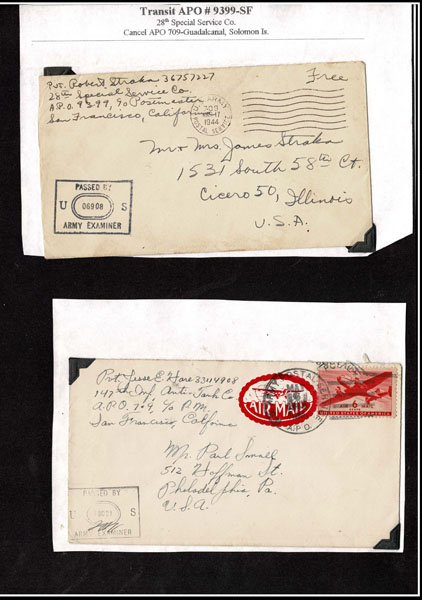 Transit APO # 9399-SF
28th Special Service Co.
Cancel APO 709-Guadalcanal, Solomon Is.
Pvt. Robert Straka 36757227
28th Special Service Co.
A.P.O. 9399, c/o Posmaster
San Francisco, California
Free
U.S. ARMY
709
1944
POSTAL SERVICE
Mr + Mrs. James Straka
1531 South 58th Ct.
Cicero 50, Illinois
U.S.A.
PASSED BY
U 06908 S
ARMY EXAMINER
Pvt. Jesse E. Hare
147th Inf. Anti-Tank Co.
A.P.O. 709, c/o P.M.
San Francisco,
AIR MAIL
POSTAL
A.P.O.
6
UNITED STATES OF AMERICA
Mr. Paul
512 Hoffman St.
Philadelphia, Pa.
U.S.A.
PASSED BY
U S
ARMY EXAMINER